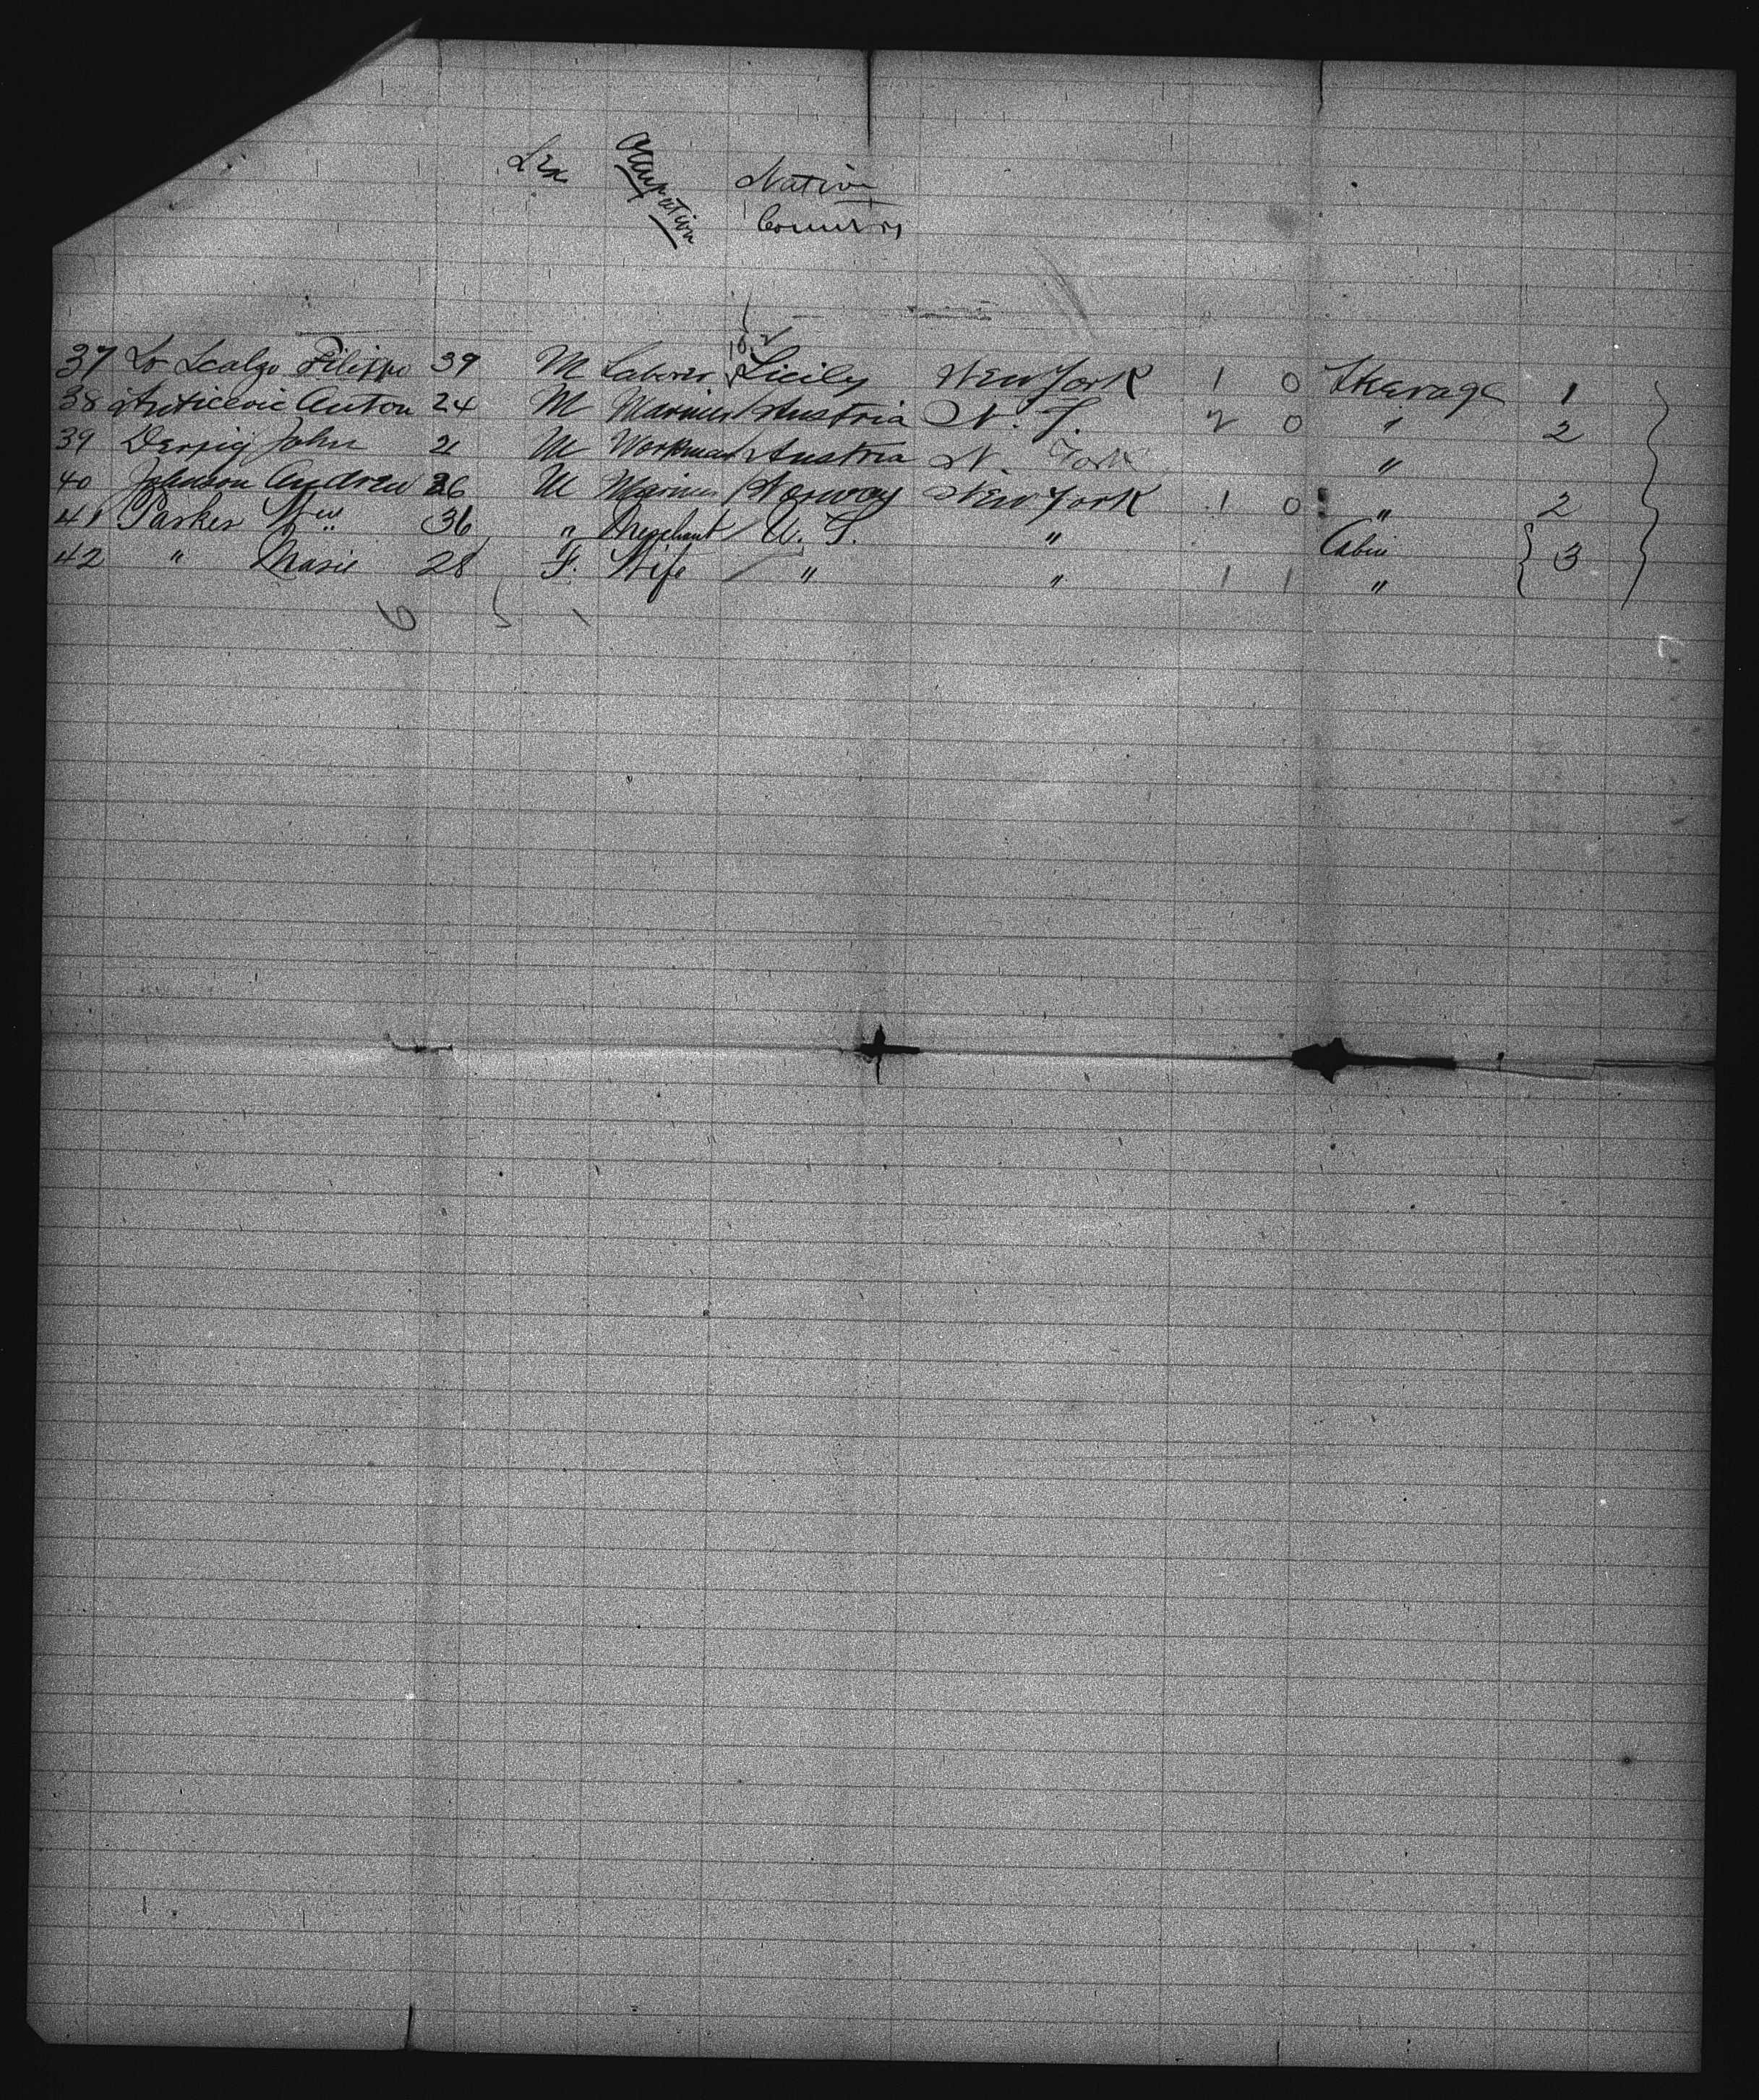 Sex Occupation Native
Country
37 Lo Scalzo Filippo 39 M Laborer Sicily New York 1 0 Steerage 1
38 Anticevic Anton 24 M Mariner Austria N. Y. 2 0 " 2
39 John 21 M Workman Austria N. York "
40 Johnson Andrew 26 M Mariner Norway New York 1 0 " 2
41 Parker Wm 36 " Merchant U. S. " Cabin
42 " Marie 28 F. Wife " " 1 1 " 3
6 5 1